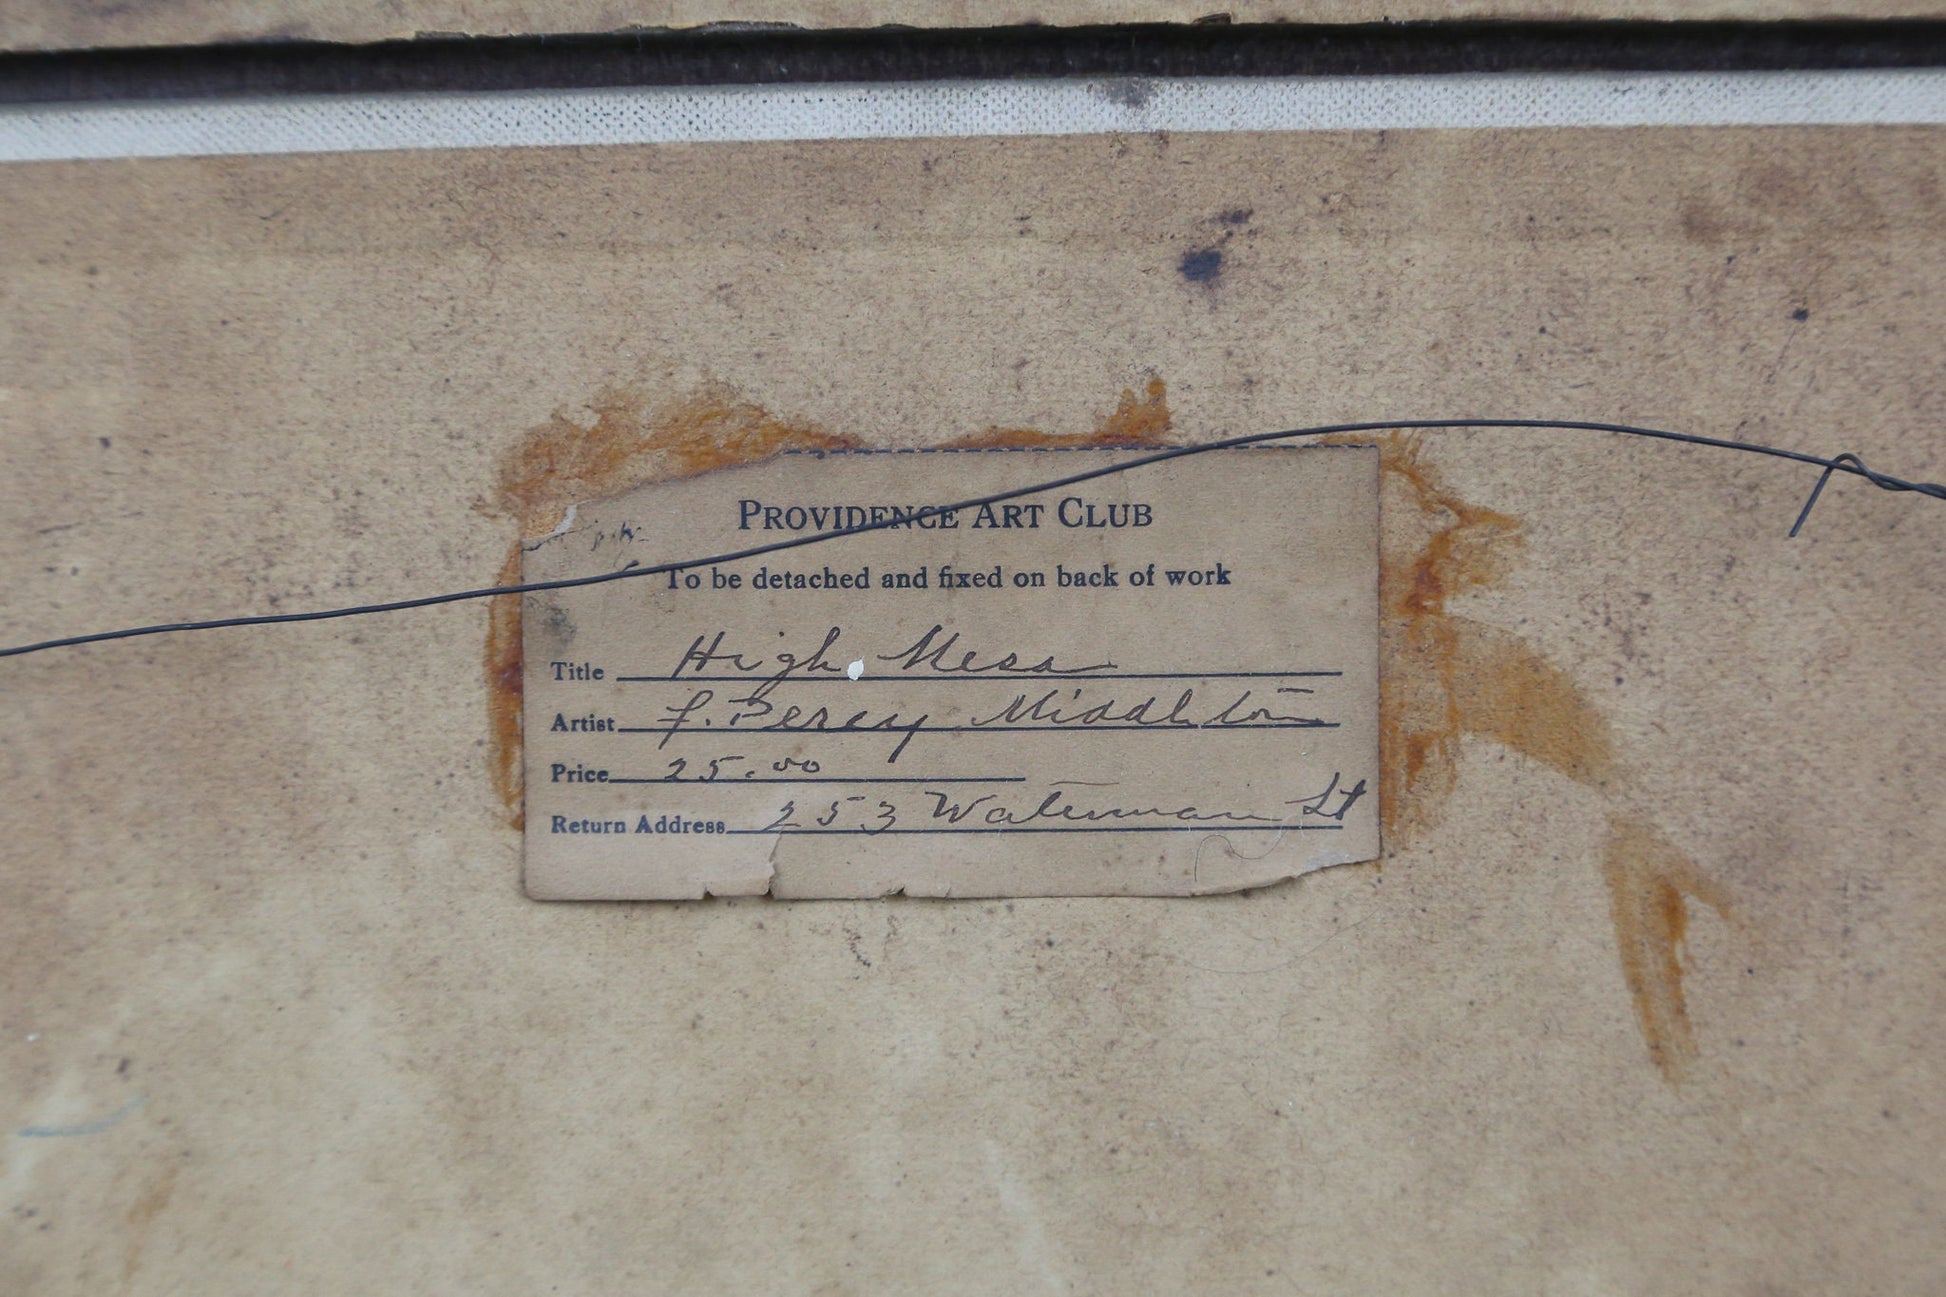 PROVIDENCE ART CLUB
To be detached and fixed on back of work
Title High Mesa
Artist F. Percy Middleton
Price 25.00
Return Address 253 Waterman St